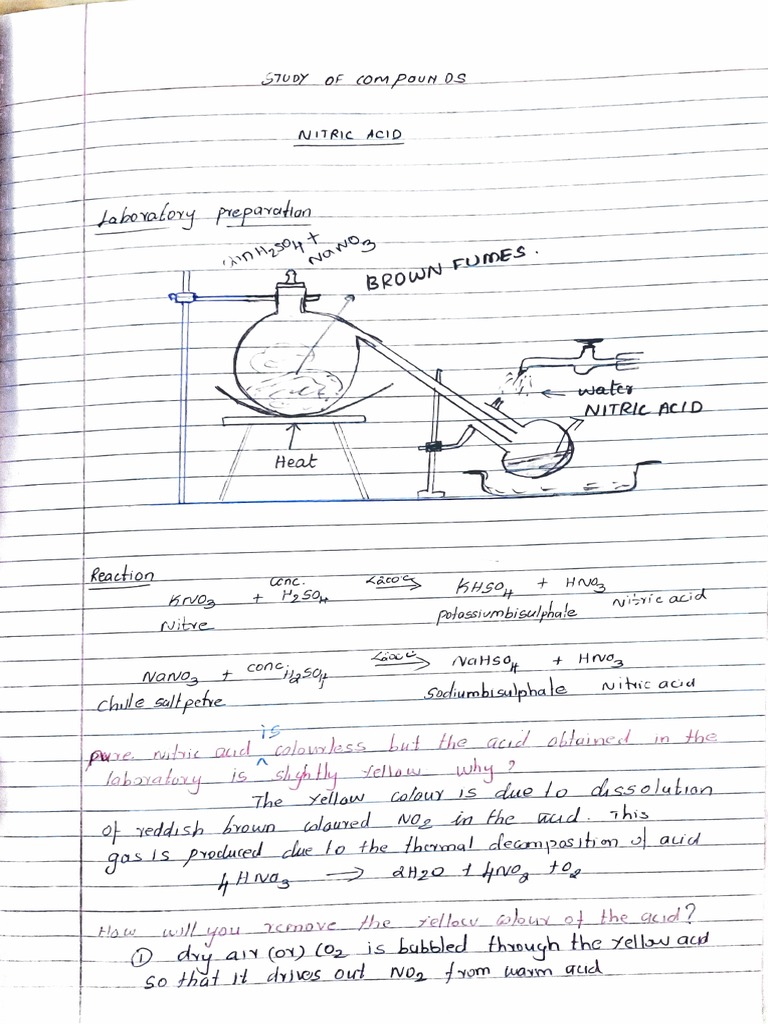 STUDY OF COMPOUNDS
NITRIC ACID
Laboratory preparation
H2SO4 +
NaNO3
BROWN FUMES.
water
NITRIC ACID
Heat
Reaction
KNO3 + conc. H2SO4 <200°C → KHSO4 + HNO3
Nitre potassiumbisulphate Nitric acid
NaNO3 + conc. H2SO4 <200°C → NaHSO4 + HNO3
Chile saltpetre sodiumbisulphate Nitric acid
pure nitric acid is colourless but the acid obtained in the
laboratory is slightly yellow why?
The yellow colour is due to dissolution
of reddish brown coloured NO2 in the acid. This
gas is produced due to the thermal decomposition of acid
4HNO3 → 2H2O + 4NO2 + O2
How will you remove the yellow colour of the acid?
① dry air (or) CO2 is bubbled through the yellow acid
so that it drives out NO2 from warm acid